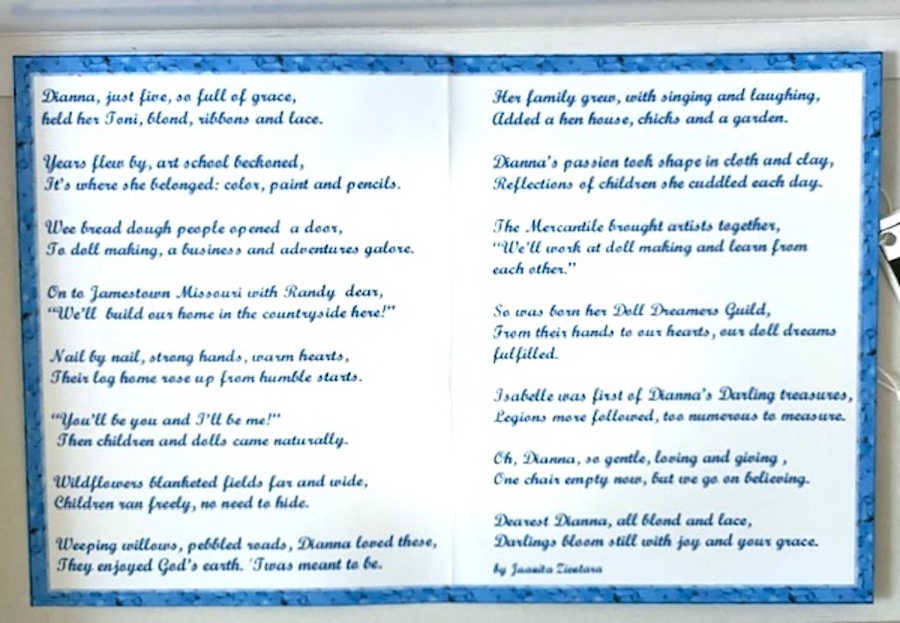 Dianna, just five, so full of grace,
held her Toni, blond, ribbons and lace.
Years flew by, art school beckoned,
It's where she belonged: color, paint and pencils.
Wee bread dough people opened a door,
To doll making, a business and adventures galore.
On to Jamestown Missouri with Randy dear,
"We'll build our home in the countryside here!"
Nail by nail, strong hands, warm hearts,
Their log home rose up from humble starts.
"You'll be you and I'll be me!"
Then children and dolls came naturally.
Wildflowers blanketed fields far and wide,
Children ran freely, no need to hide.
Weeping willows, pebbled roads, Dianna loved these,
They enjoyed God's earth. 'Twas meant to be.
Her family grew, with singing and laughing,
Added a hen house, chicks and a garden.
Dianna's passion took shape in cloth and clay,
Reflections of children she cuddled each day.
The Mercantile brought artists together,
"We'll work at doll making and learn from
each other."
So was born her Doll Dreamers Guild,
From their hands to our hearts, our doll dreams
fulfilled.
Isabelle was first of Dianna's Darling treasures,
Legions more followed, too numerous to measure.
Oh, Dianna, so gentle, loving and giving ,
One chair empty now, but we go on believing.
Dearest Dianna, all blond and lace,
Darlings bloom still with joy and your grace.
by Juanita Zientara